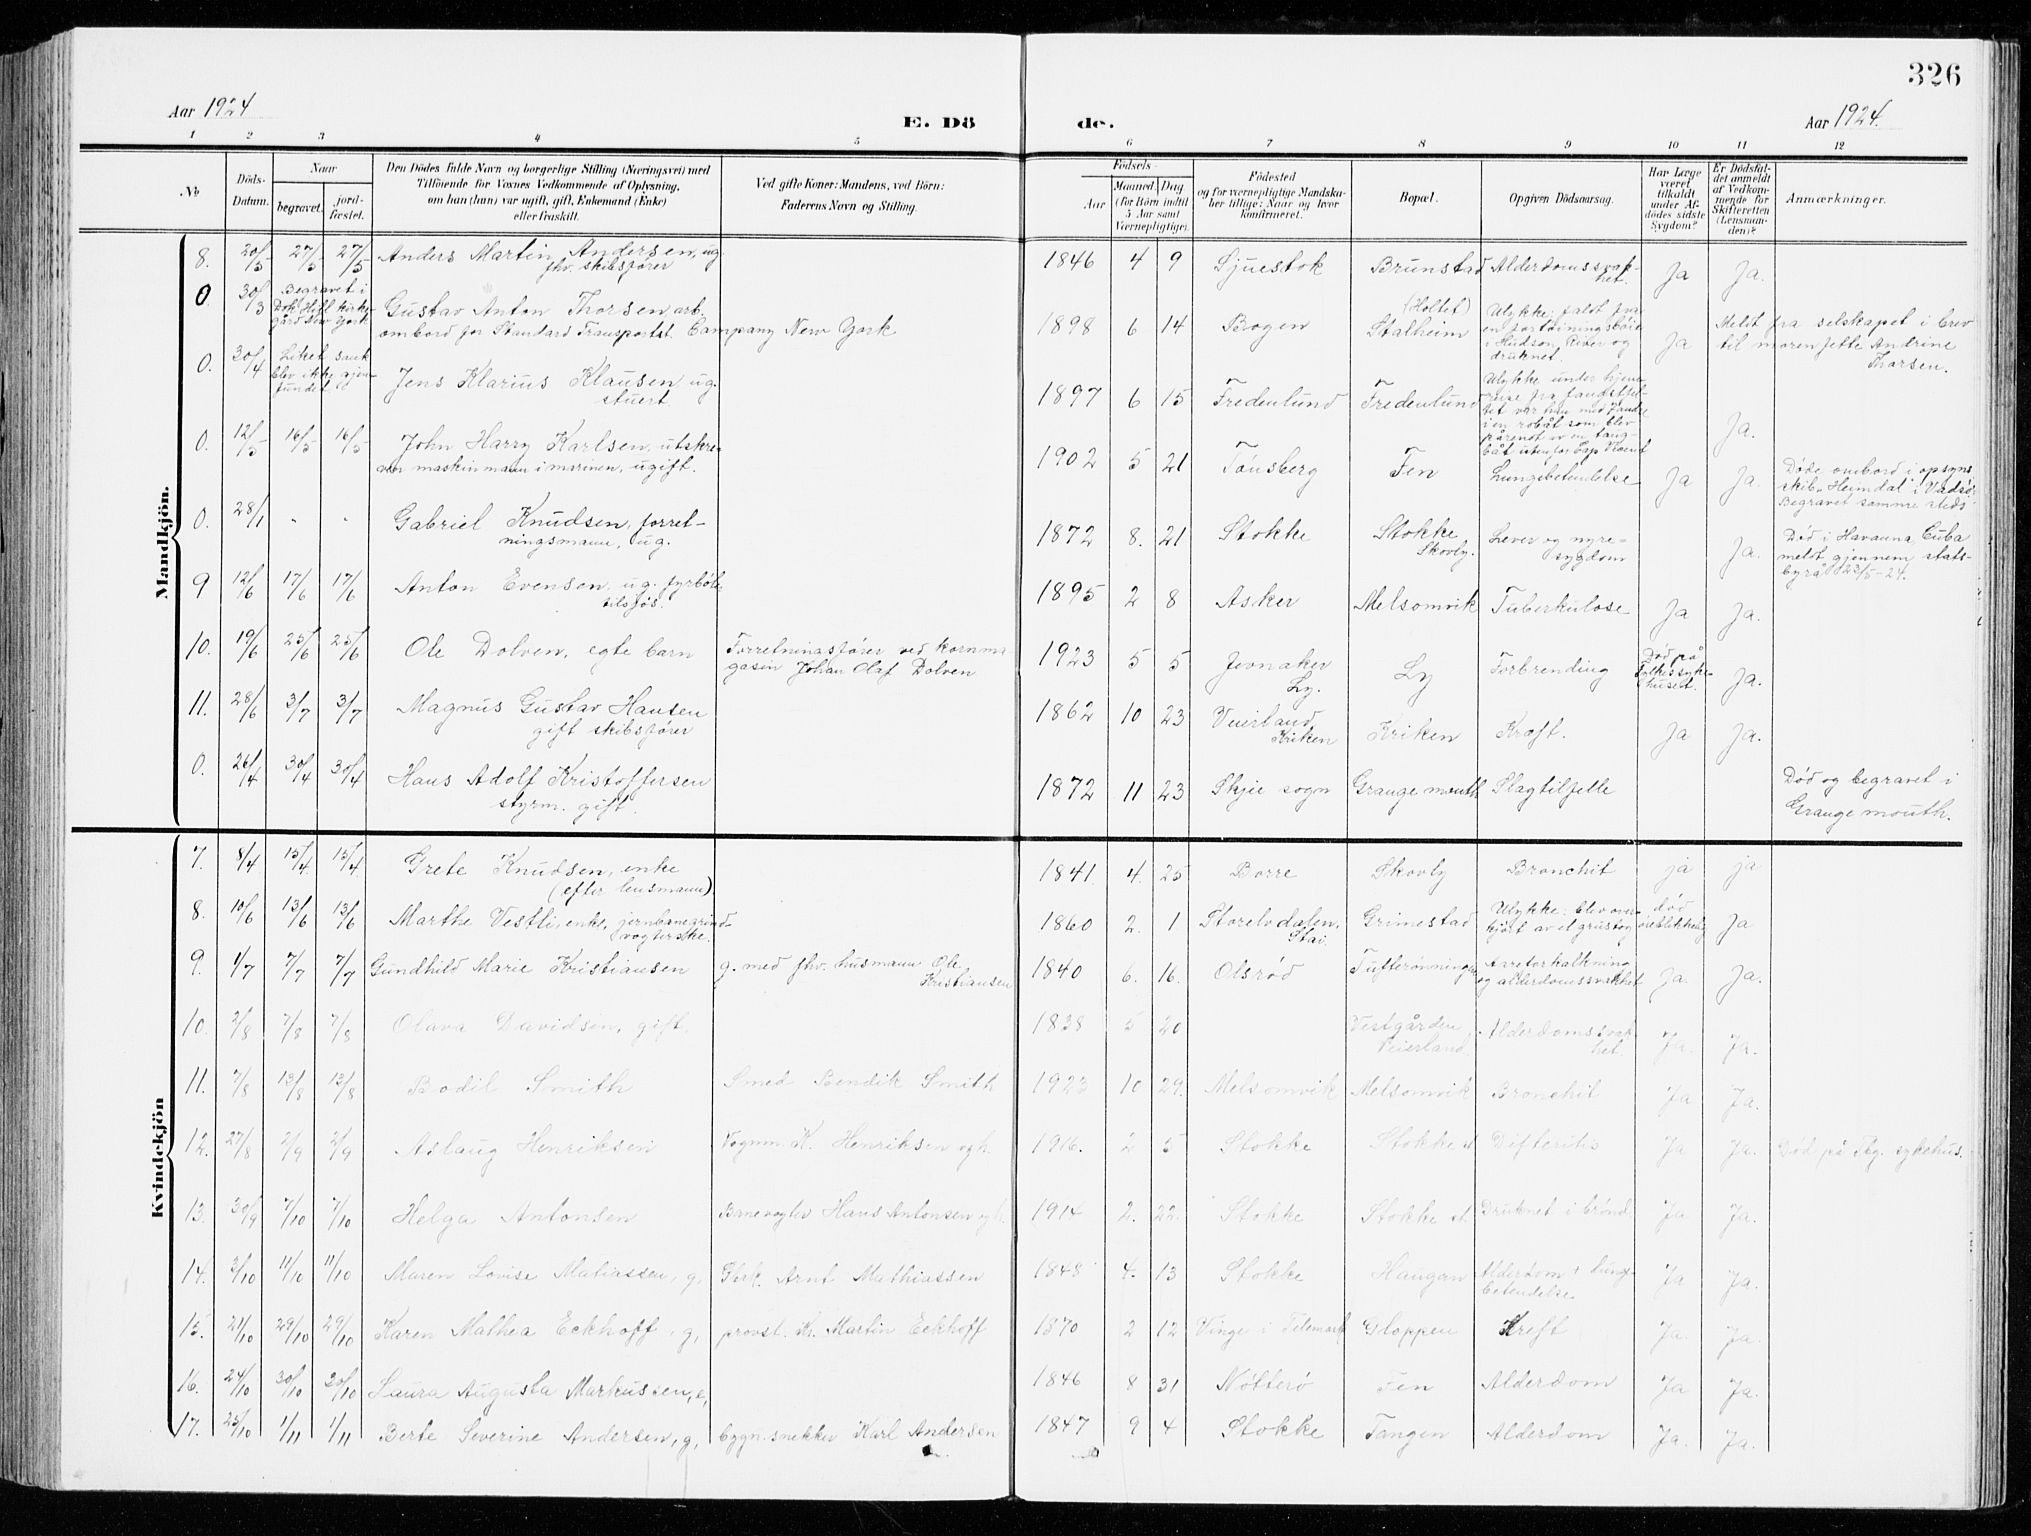 326
Aar 1924
E. Dö
de.
Aar 1924.
1 2 3 4 5 6 7 8 9 10 11 12
No
Döds-
Datum.
Naar
begravet.
jord-
fæstet.
Den Dödes fulde Navn og borgerlige Stilling (Næringsvei) med
Tilföiende for Voxnes Vedkommende af Oplysning,
om han (hun) var ugift, gift, Enkemand (Enke)
eller fraskilt.
Ved gifte Koner: Mandens, ved Börn:
Faderens Navn og Stilling.
Födsels-
Aar
Maaned. Dag
(for Börn indtil
5 Aar samt
Værnepligtige).
Födested
og for værnepligtige Mandska-
ber tillige: Naar og hvor
konfirmeret.
Bopæl.
Opgiven Dödsaarsag.
Har Læge
været
tilkaldt
under Af-
dödes sidste
Sygdom?
Er Dödsfal-
det anmeldt
af Vedkom-
mende for
Skifteretten
(Lensman-
den)?
Anmærkninger.
Mandkjön.
8. 20/5 27/5 27/5 Anders Martin Andersen, ug. 1846 4 9 Sjuestok Brunstad Alderdomssvak- Ja Ja.
fhv. skibsfører
het.
0 30/3 Begravet i
Gustav Anton Thorsen, arb. 1898 6 14 Bogen (Holtet) Ulykke: faldt fra
ombord for Standard Transportst. Company New York Stalheim en fortøiningsbøie Ja Meldt fra selskapet i brev
i Hudson River og til moren Jette Andrine
druknet. Thorsen.
0. 30/4 Liket sank
blev ikke gjen-
fundet
Jens Klarius Klausen, ug. 1897 6 15 Fredenlund Fredenlund Ulykke under hjem-
stuert
reise fra fangstfel-
i en robåt som blev Ja.
0. 12/5 16/5 16/5 John Harry Karlsen, utskre- 1902 5 21 Tønsberg Fen Lungebetendelse Ja Ja. Døde ombord i opsyns
ven maskinmann i marinen, ugift. skib „Heimdal" i Vadsø.
Begravet samme steds
0. 28/1 " " Gabriel Knudsen, forret- 1872 8. 21 Stokke Stokke Lever og nyre- Ja. Død i Havanna, Cuba
ningsmann, ug. Skovly. sygdom meldt gjennem stats-
byrå 23/5-24.
9 12/6 17/6 17/6 Anton Evensen, ug. fyrbøter 1895 2 8 Asker Melsomvik Tuberkulose Ja Ja.
tilsjøs.
10. 19/6 25/6 25/6 Ole Dolven, egte barn Forretningsfører ved kornma- 1923 5 5 Jevnaker Ly Forbrending Død på Ja.
gasin Johan Olaf Dolven Ly. Fylkessyke-
huset.
11. 28/6 3/7 3/7 Magnus Gustav Hansen 1862 10 23 Veierland Kriken Kræft. Ja Ja.
gift skibsfører Kriken
0. 26/4 30/4 30/4 Hans Adolf Kristoffersen 1872 11 23 Skjee sogn Grangemouth Slagtilfelle Død og begravet i
styrm. gift. Grangemouth.
Kvindekjön
7. 8/4 15/4 15/4 Grete Knudsen, enke 1841. 4. 25 Borre Skovly Bronchit ja ja
(efter lensmann)
8. 10/6 13/6 13/6 Marthe Vestli, enke, jernbanegrind- 1860 2. 1 Storelvdalen, Grimestad Ulykke: blev over- død Ja
vogterske. Stai. kjørt av et grustog øieblikkelig
9. 1/7 7/7 7/7 Gundhild Marie Kristiansen g. med fhv. husmann Ole 1840 6. 16. Olsrød Tufterønningen Aareforkalkning Ja. Ja.
Kristiansen og alderdomssvakhet
10. 2/8 7/8 7/8 Olava Davidsen, gift. 1838 5 20 Vestgården Alderdomssvak- Ja. Ja.
Veierland. het.
11. 7/8 13/8 13/8 Bodil Smith Smed Bendik Smith 1923 10 29. Melsomvik Melsomvik Bronchit Ja Ja.
12. 27/8 2/9 2/9 Aslaug Henriksen Vognm. K. Henriksen og h. 1916. 2 5 Stokke Stokke st Difteritis Ja Ja. Død på Tbg. sykehus.
13. 30/9 7/10 7/10 Helga Antonsen Banevogter Hans Antonsen og h. 1914 2. 22. Stokke Stokke st. Druknet i brønd Ja Ja.
14. 3/10 11/10 11/10 Maren Lovise Matiassen, g, Arnt Mathiassen 1848 4. 13 Stokke Haugan Alderdom + lunge- Ja Ja.
betendelse
15. 21/10 29/10 29/10 Karen Mathea Eckhoff, g, provst. Kr. Martin Eckhoff 1870 2 12 Vinge i Telemark Gloppen Kreft Ja. Ja.
16. 24/10 30/10 30/10 Laura Augusta Markussen, e, 1846 8 31 Nøtterø Fen Alderdom Ja Ja.
17. 25/10 1/11 1/11 Berte Severine Andersen, g, bygn.snekker Karl Andersen 1847 9 4 Stokke Tangen Alderdom Ja. Ja.